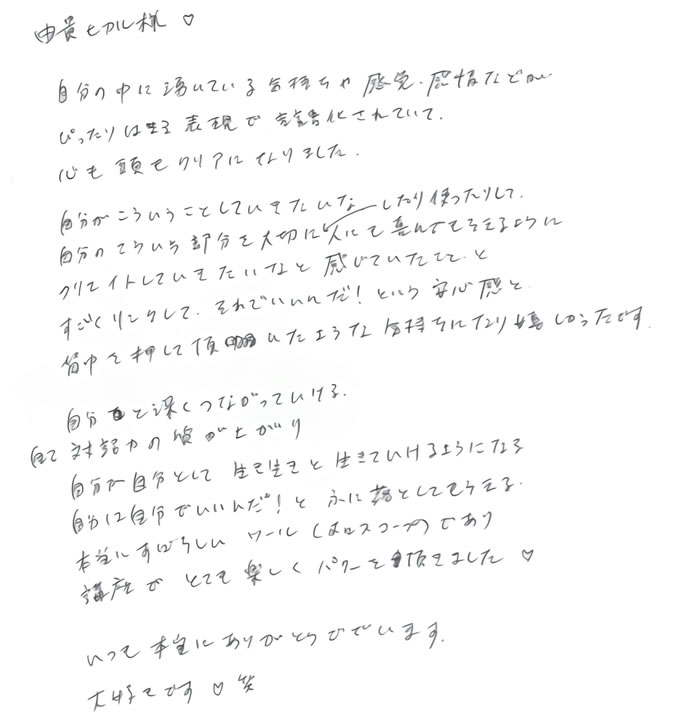 由貴ヒカル様 ♡
自分の中に湧いている気持ちや感覚・感情などが
ぴったりはまる表現で言語化されていて、
心も頭もクリアになりました。
自分がこういうことしていきたいな
自分のこういう部分を大切にしたり使ったりして、
人にも喜んでもらえるように
クリエイトしていきたいなと感じていたことと
すごくリンクして、それでいいんだ!という安心感と
背中を押して頂いたような気持ちになり嬉しかったです。
自分と深くつながっていける。
自己対話力の質が上がり
自分が自分として生き生きと生きていけるようになる
自分は自分でいいんだ!とふに落としてもらえる。
本当にすばらしいツール(ホロスコープ)であり
講座でとても楽しくパワーを頂きました ♡
いつも本当にありがとうございます。
大好きです ♡ 笑